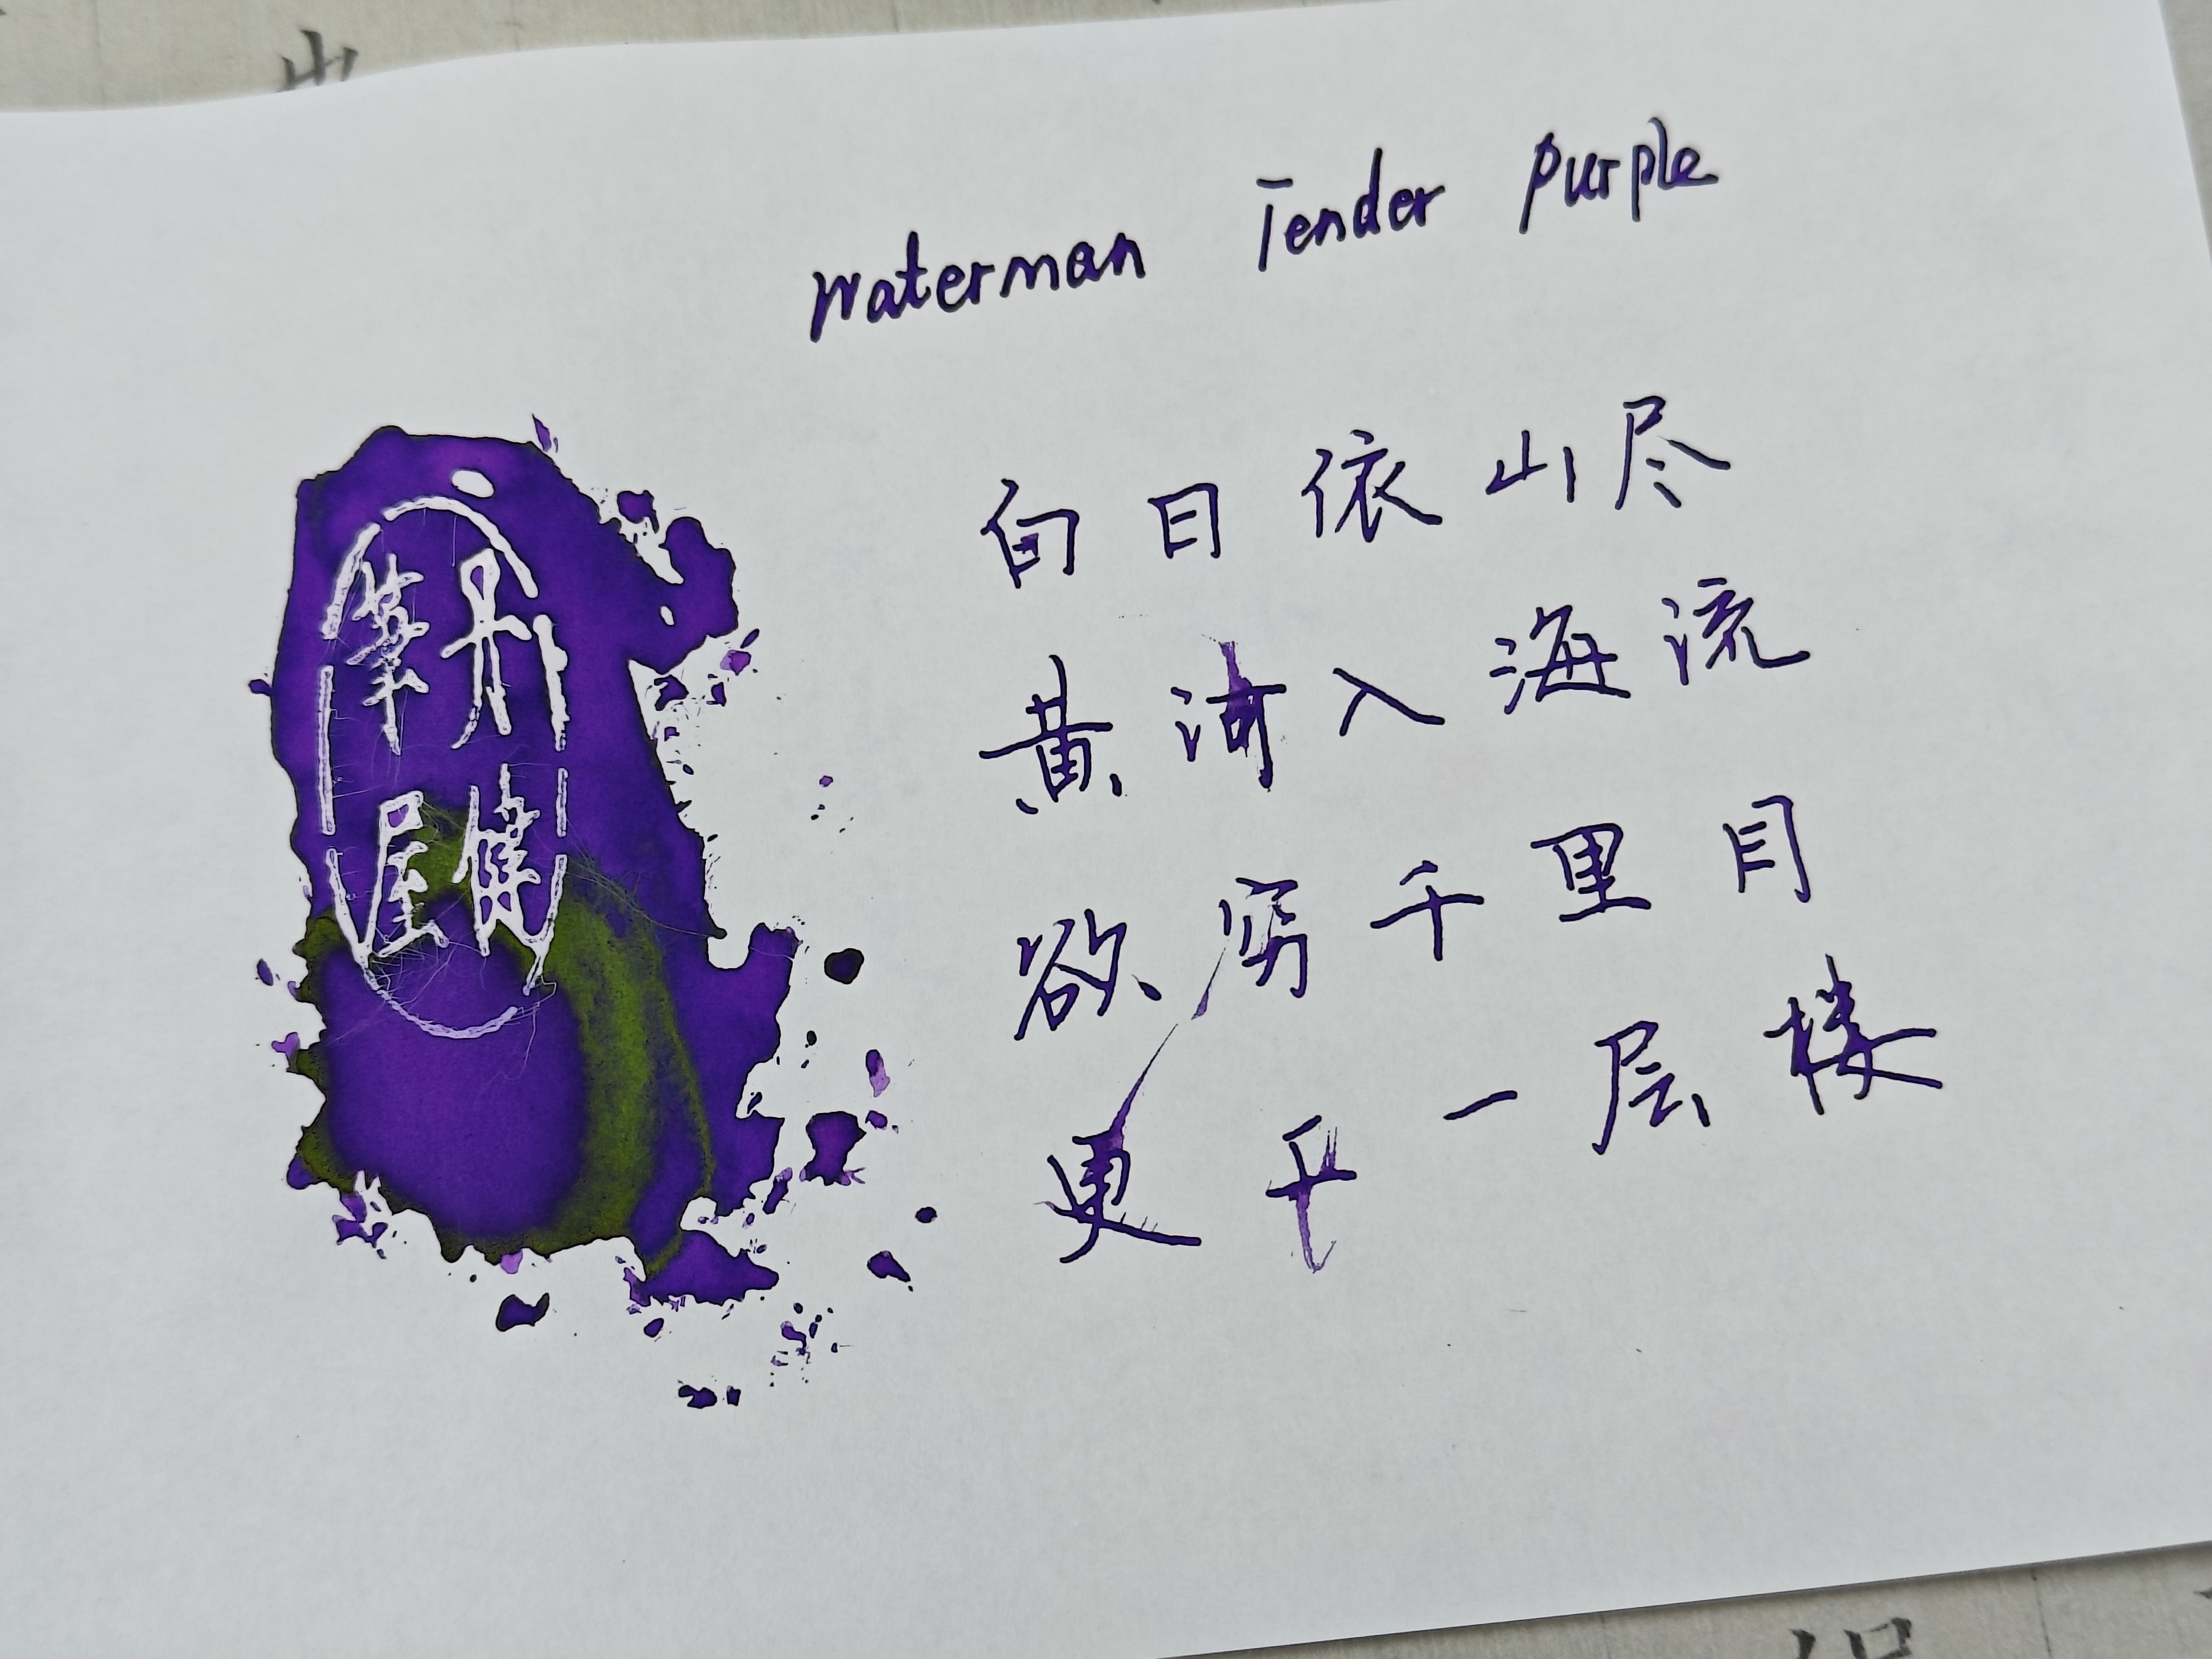 Waterman Tender Purple
白日依山尽
黄河入海流
欲穷千里目
更上一层楼